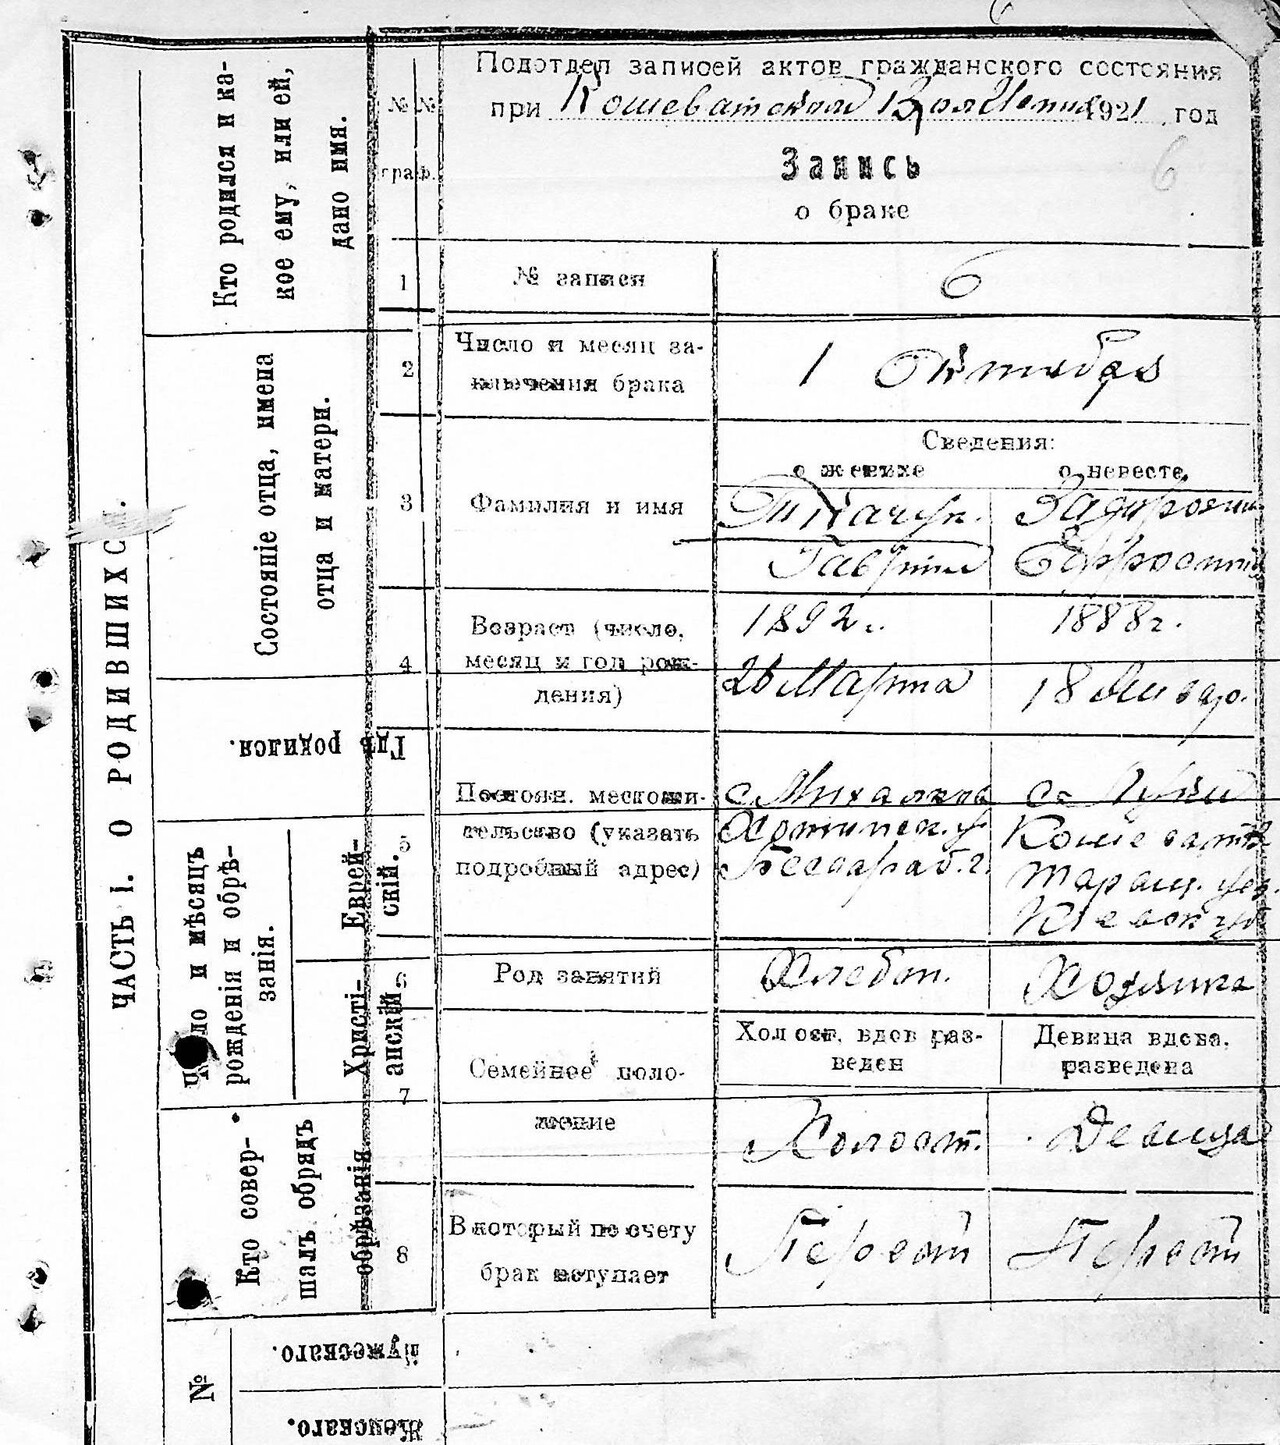 Подотдел записей актов гражданского состояния
при Кошеватском ВолИсполк 1921 год
Запись
о браке
6
№№
граф.
1
№ записи
6
2
Число и месяц за-
ключения брака
1 Октября
Сведения:
о женихе
о невесте
3
Фамилия и имя
Ткачук
Гаврил
Задорожн
Ефросинія
4
Возраст (число,
месяц и год рож-
дения)
1892 г.
26 Марта
1888 г.
18 Января
5
Постоян. местожи-
тельство (указать
подробный адрес)
с. Михалково
Хотинск. у.
Бессараб. г.
с. Луки
Кошеватск
Таращ. уез.
Киевск губ
6
Род занятий
Хлебоп.
Хозяйка
7
Семейное поло-
жение
Холост, вдов раз-
веден
Девица вдова,
разведена
Холост.
Девица
8
В который по счету
брак вступает
Первый
Первый
ЧАСТЬ І. О РОДИВШИХСЯ.
Кто родился и ка-
кое ему, или ей,
дано имя.
Состояніе отца, имена
отца и матери.
Гдѣ родился.
Число и мѣсяцъ
рожденія и обрѣ-
занія.
Еврей-
скій.
Христі-
анскій
Кто совер-
шалъ обрядъ
обрѣзанія
№
Мужескаго.
Женскаго.